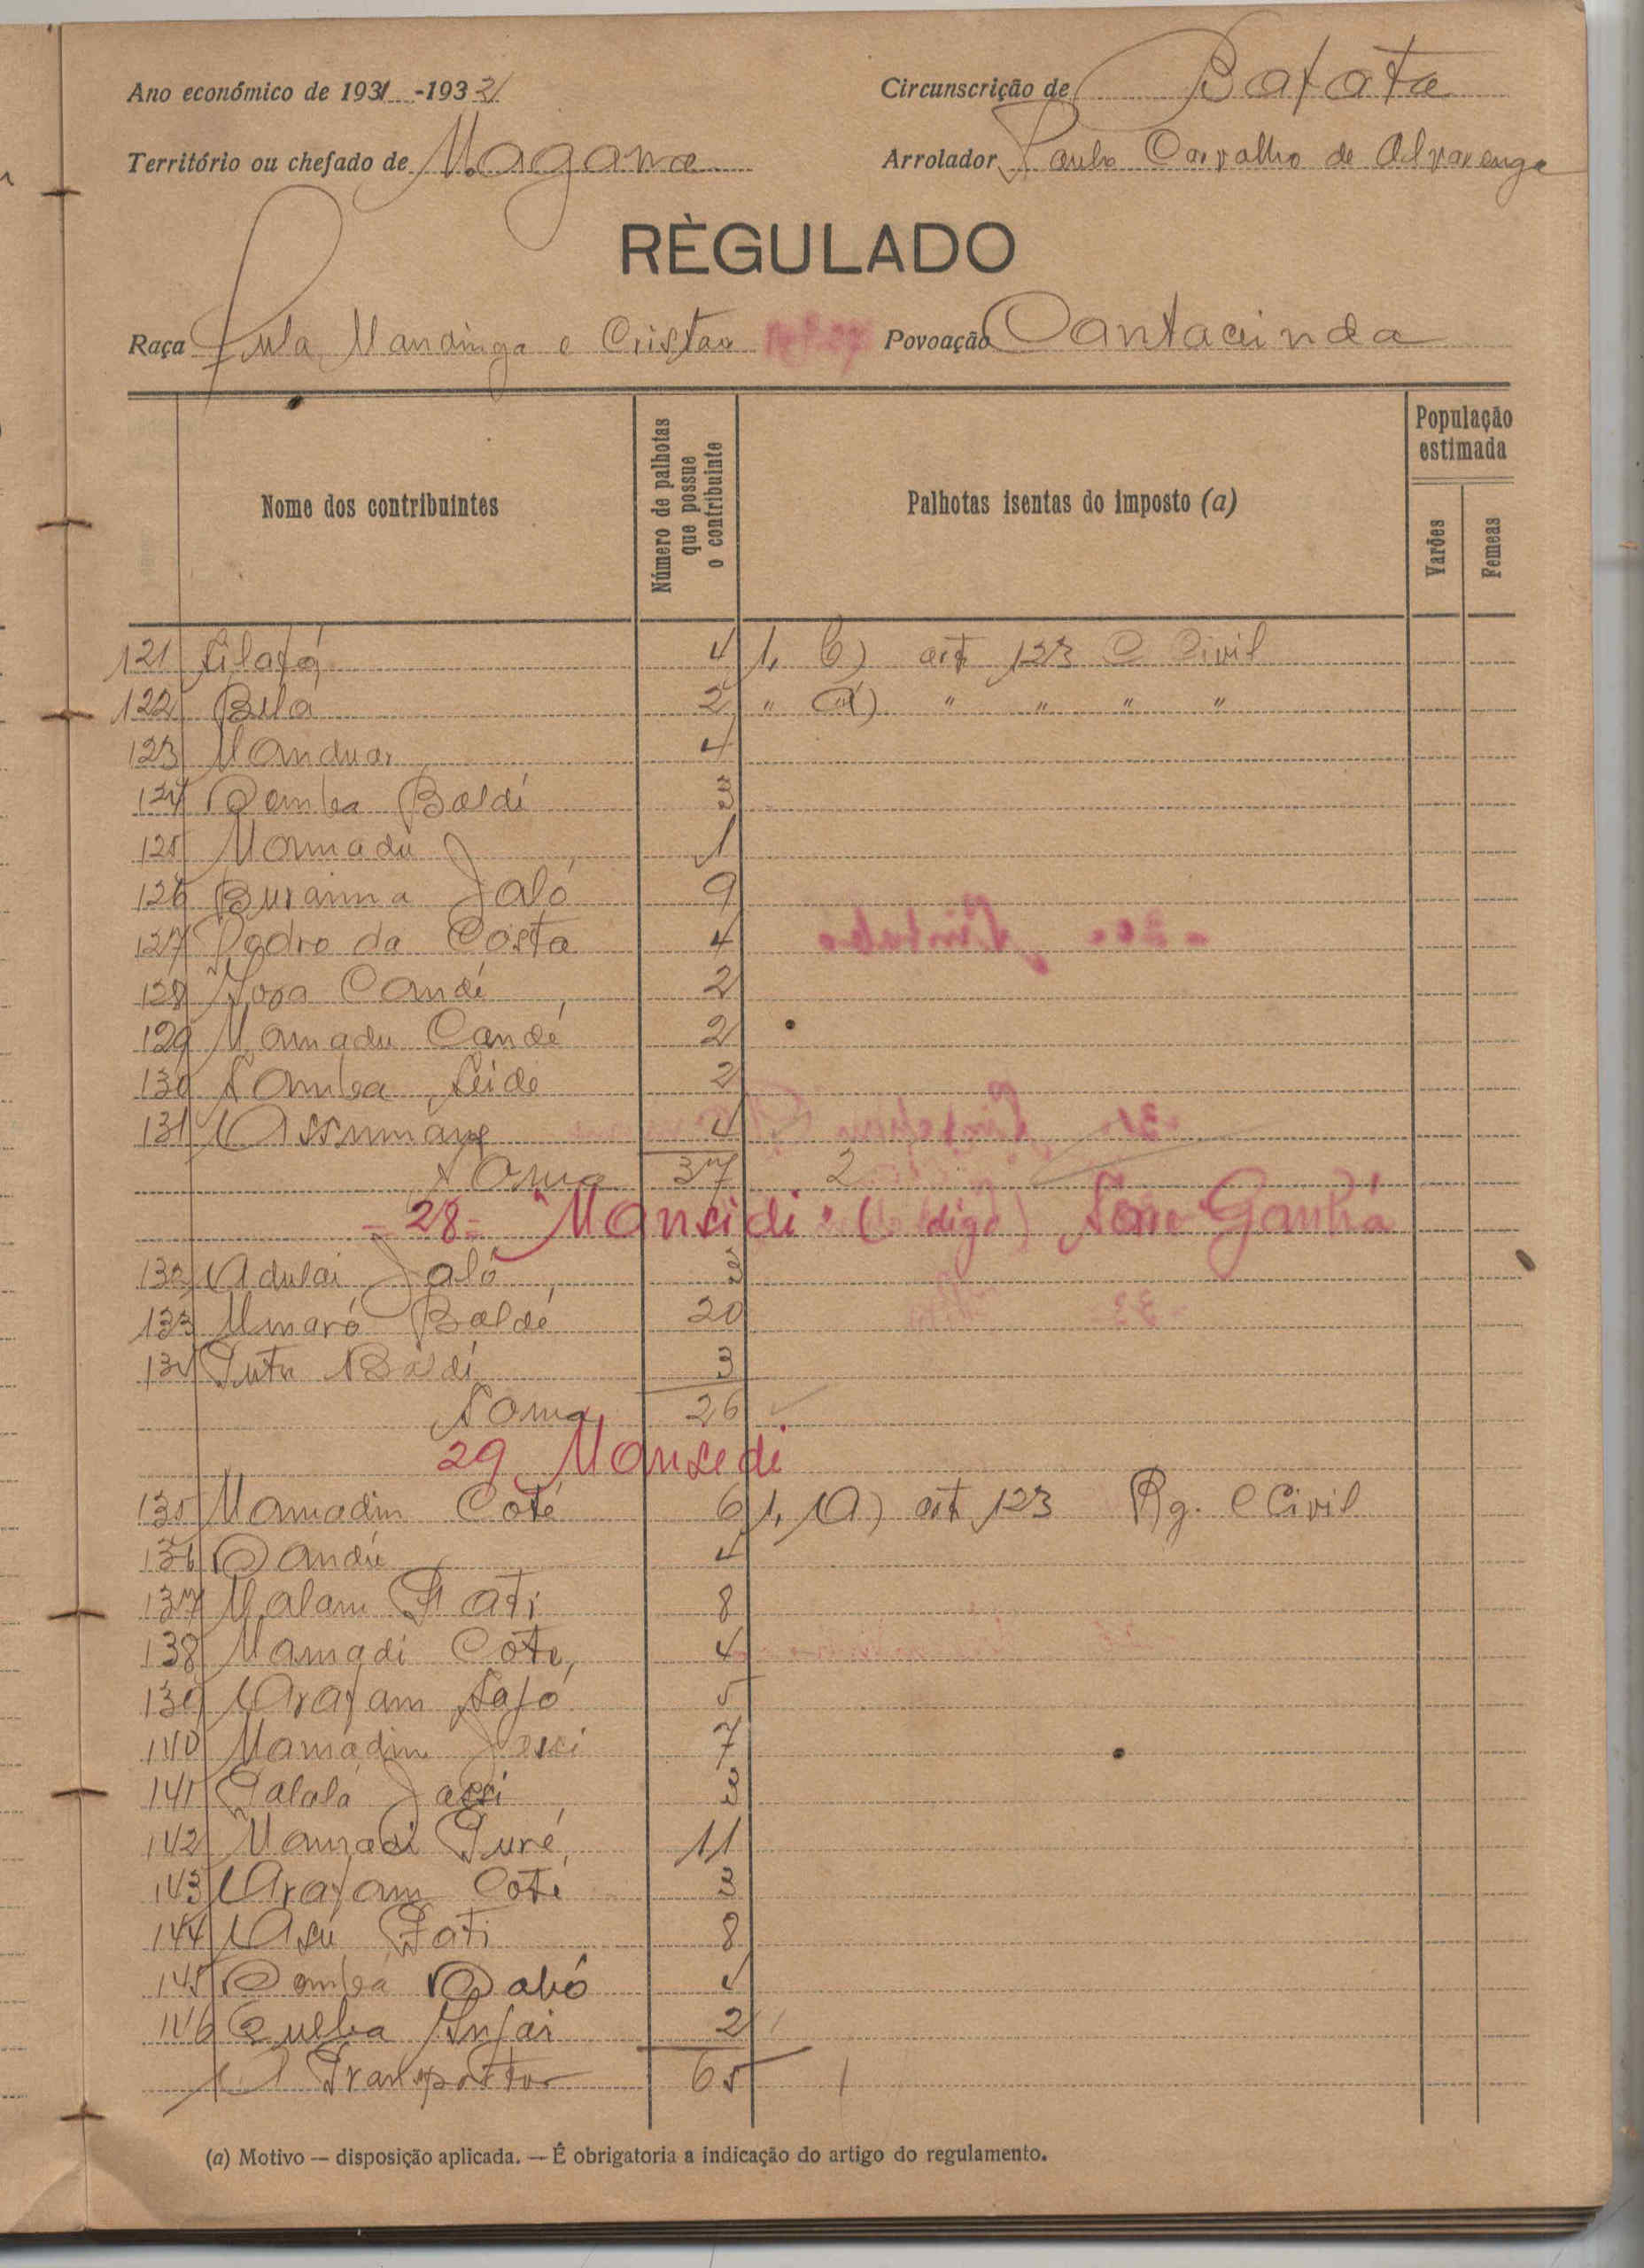 Ano económico de 1931-1932
Circunscrição de Bafata
Território ou chefado de Magana
Arrolador Paulo Carvalho de Alvarenga
RÈGULADO
Raça Fula, Mandinga e Cristao
Povoação Cantacunda
Nome dos contribuintes
Número de palhotas que possue o contribuinte
Palhotas isentas do imposto (a)
População estimada
Varões
Femeas
121 Silafá 4 1, b) art 123 C Civil
122 Bilá 2 " a) " " " "
123 Manduar 4
124 Demba Baldé 3
125 Mamadu 1
126 Buraima Jaló 9
127 Pedro da Costa 4
128 Iora Candé 2
129 Mamadu Candé 2
130 Samba Seide 2
131 Assumane 4
Soma 37 2
- 28 = Mansidi • ( digo ) Sare Ganhá
132 Adulai Jaló 3
133 Umaró Baldé 20
134 Tutu Baldé 3
Soma 26
29 Mansedi
135 Mamadim Coté 6 1, (a) art 123 Rg. C Civil
136 Dandú 4
137 Malam Fati 8
138 Mamadi Coté 4
139 Arafam Safó 5
140 Mamadim Jassi 7
141 Galalá Jassi 3
142 Mamadi Turé 11
143 Arafam Coté 3
144 Asú Fati 8
145 Demba Dabó 4
146 Quelba Infai 2
A Transportar 65 1
(a) Motivo — disposição aplicada. — É obrigatoria a indicação do artigo do regulamento.